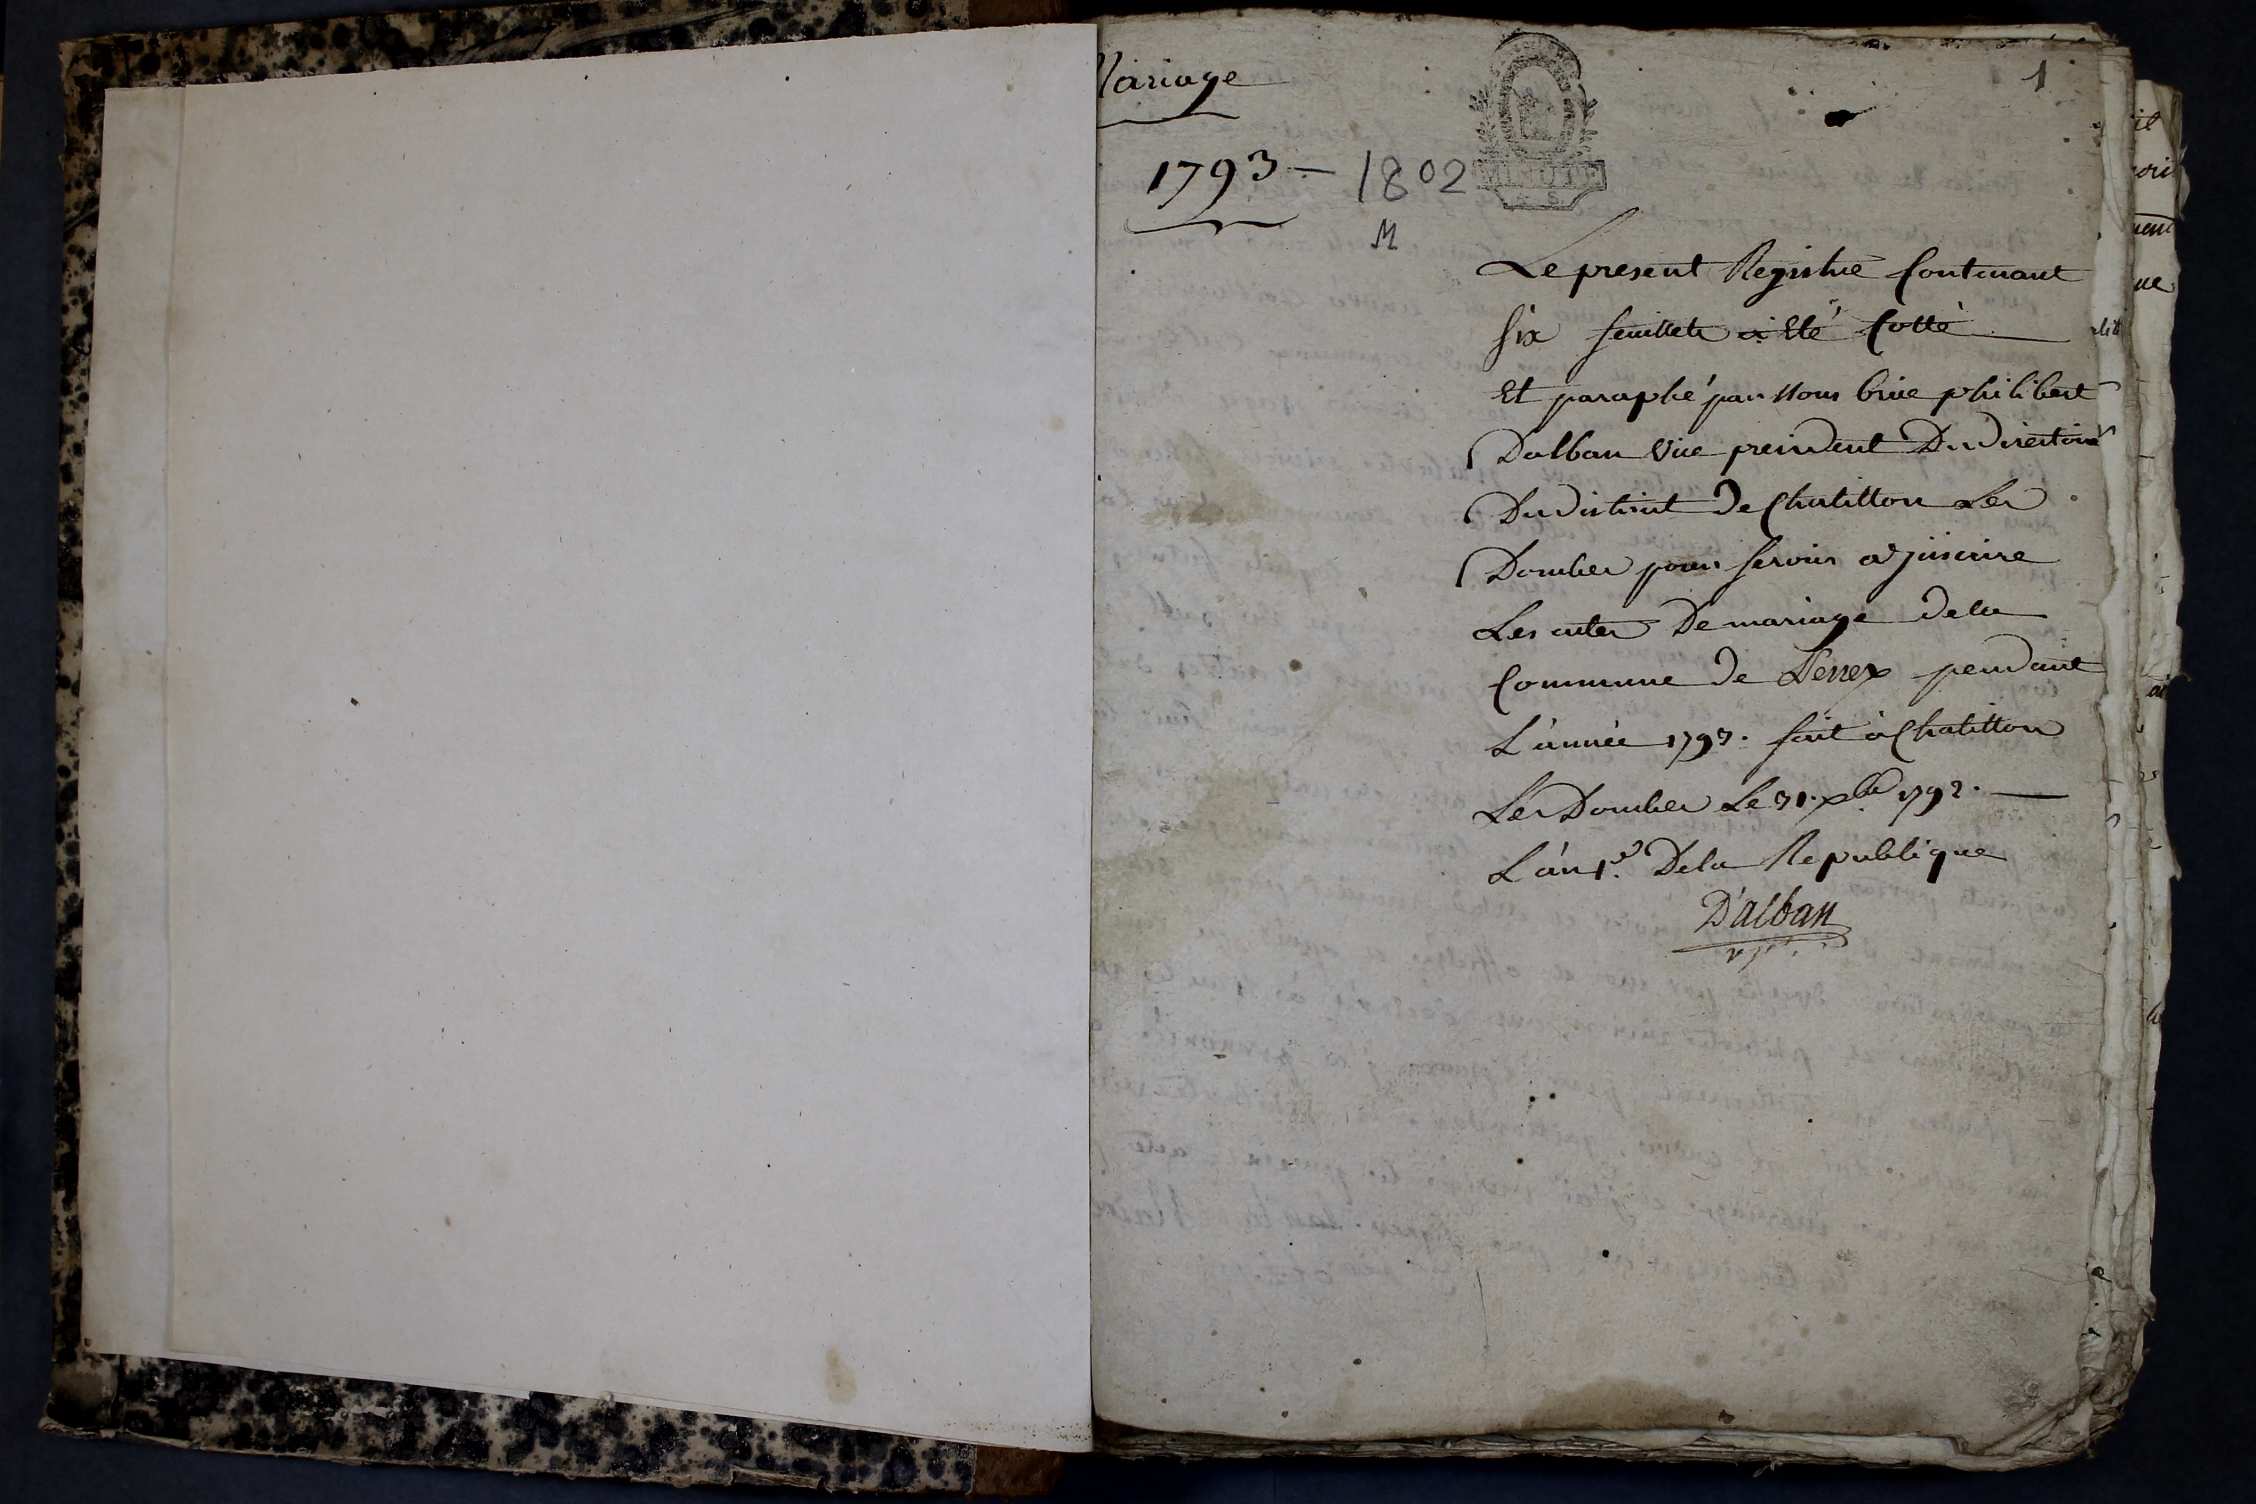 Mariage
1
1793 - 1802
M
Le present Registre Contenant
six feuillets a été Cotté
Et paraphé par Nous Philibert
Dalban Vice president Du directoire
Du district De Chatillon Les
Dombes pour servir a y inscrire
Les actes De mariage De la
Commune de pendant
L'année 1793. fait à Chatillon
Les Dombes Le 31. xbre 1792.
L'an 1er De la Republique
D'alban